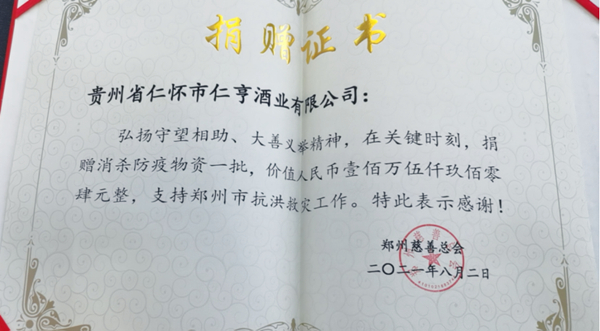 捐赠证书
贵州省仁怀市仁亨酒业有限公司：
弘扬守望相助、大善义举精神，在关键时刻，捐
赠消杀防疫物资一批，价值人民币壹佰万伍仟玖佰零
肆元整，支持郑州市抗洪救灾工作。特此表示感谢！
郑州慈善总会
二〇二一年八月二日